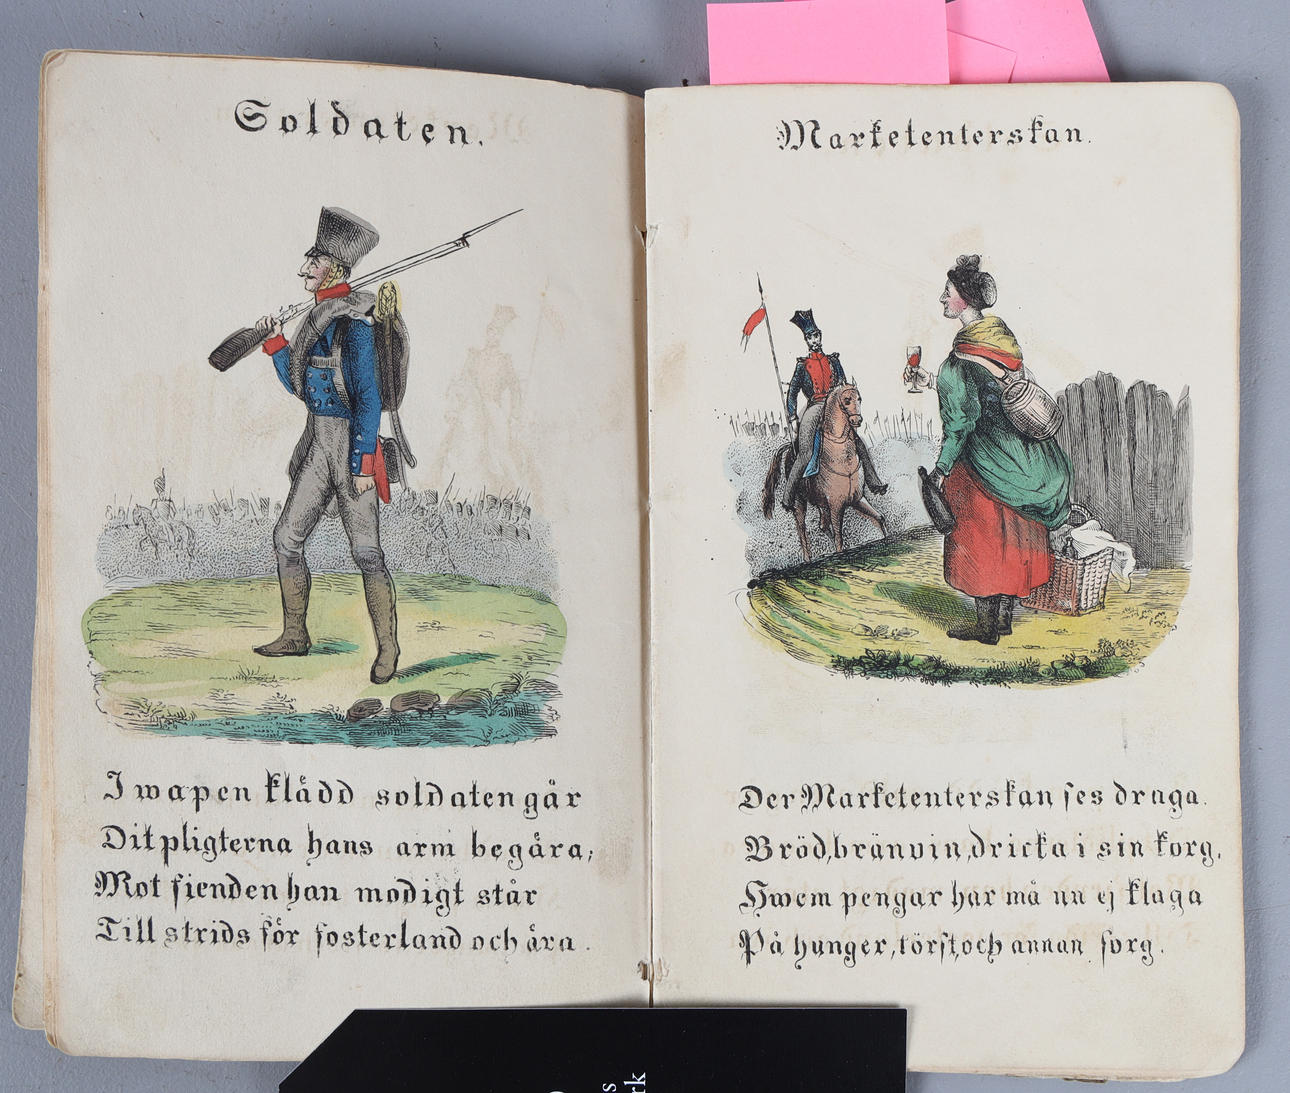 Soldaten.
I wapen klädd soldaten går
Dit pligterna hans arm begära;
Mot fienden han modigt står
Till strids för fosterland och ära.
Marketenterskan.
Der Marketenterskan ses draga.
Bröd, bränvin, dricka i sin korg,
Hwem pengar har må nu ej klaga
På hunger, törst, och annan sorg.
s
rk